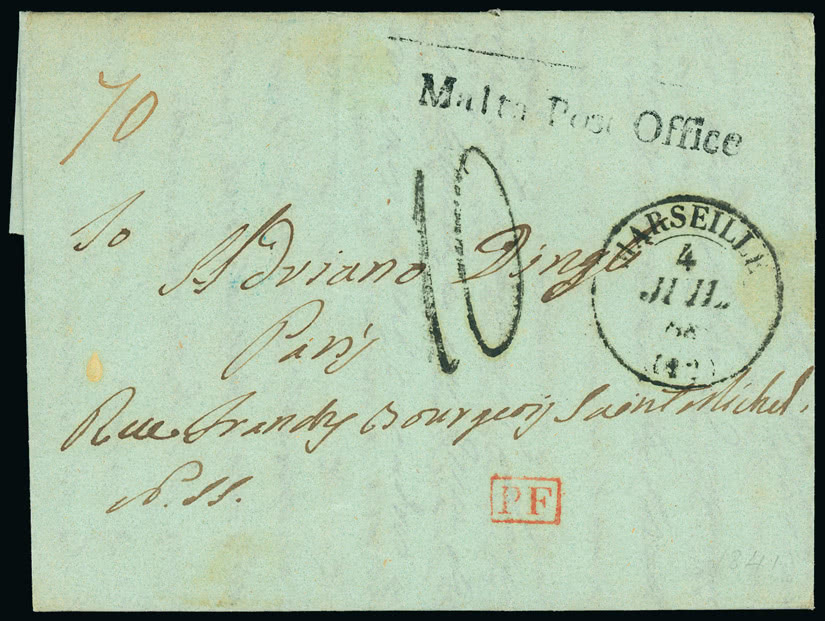 70
Malta Post Office
10
MARSEILLE
4
JUIL.
(12)
To
Adriano Dingli
Paris
Rue Francs Bourgeois Saint Michel.
N. 11.
PF
1841